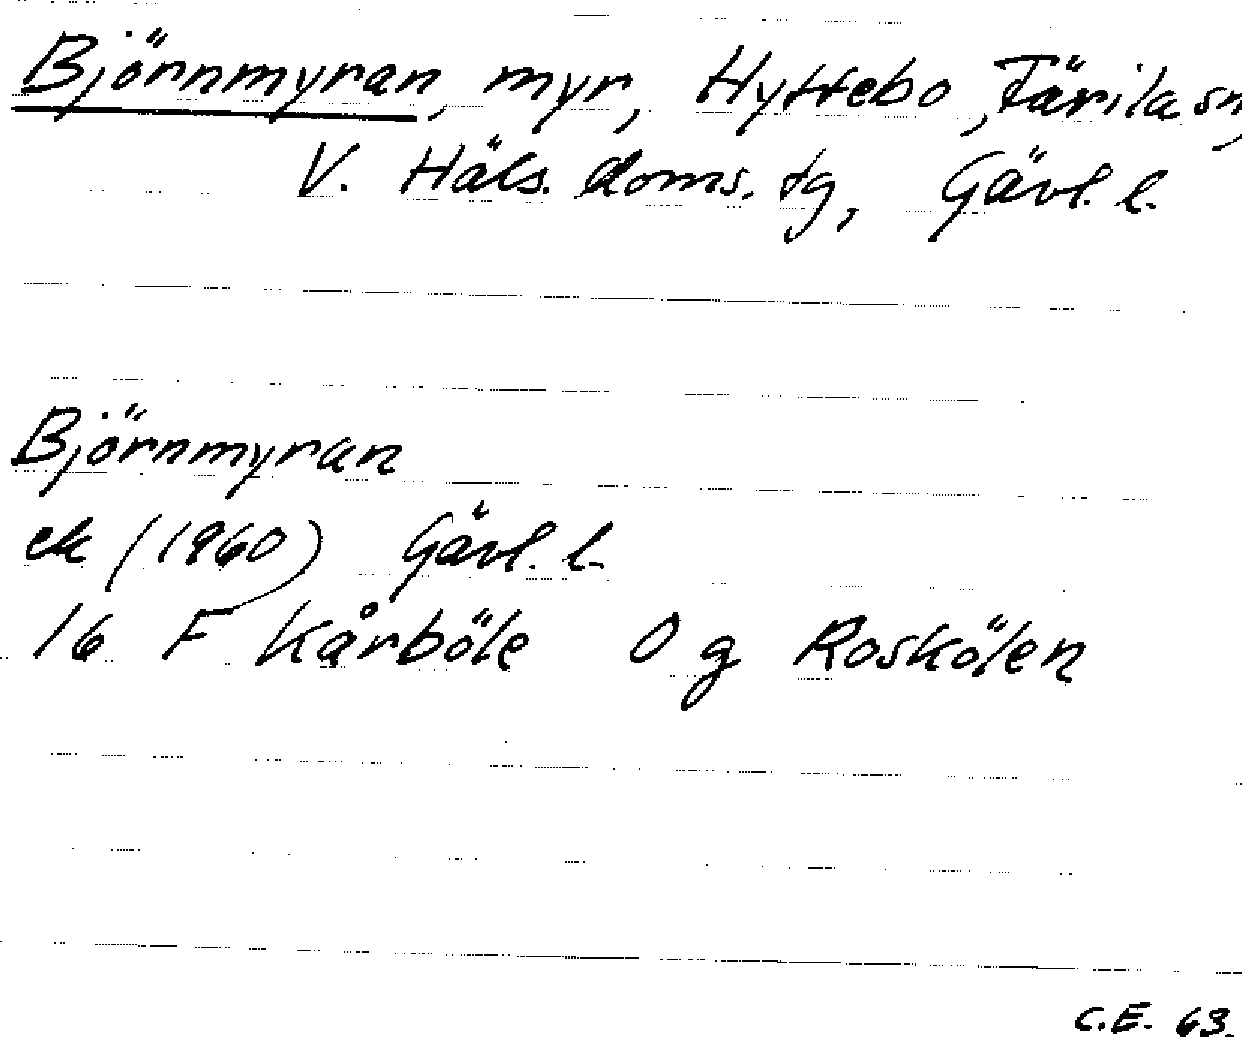 Björnmyran, myr, Hyttebo, Färila sn,
V. Häls. doms. tg, Gävl. l.
Björnmyran
ek (1960) Gävl. l.
16 F Kårböle O g Roskölen
C.E. 63.